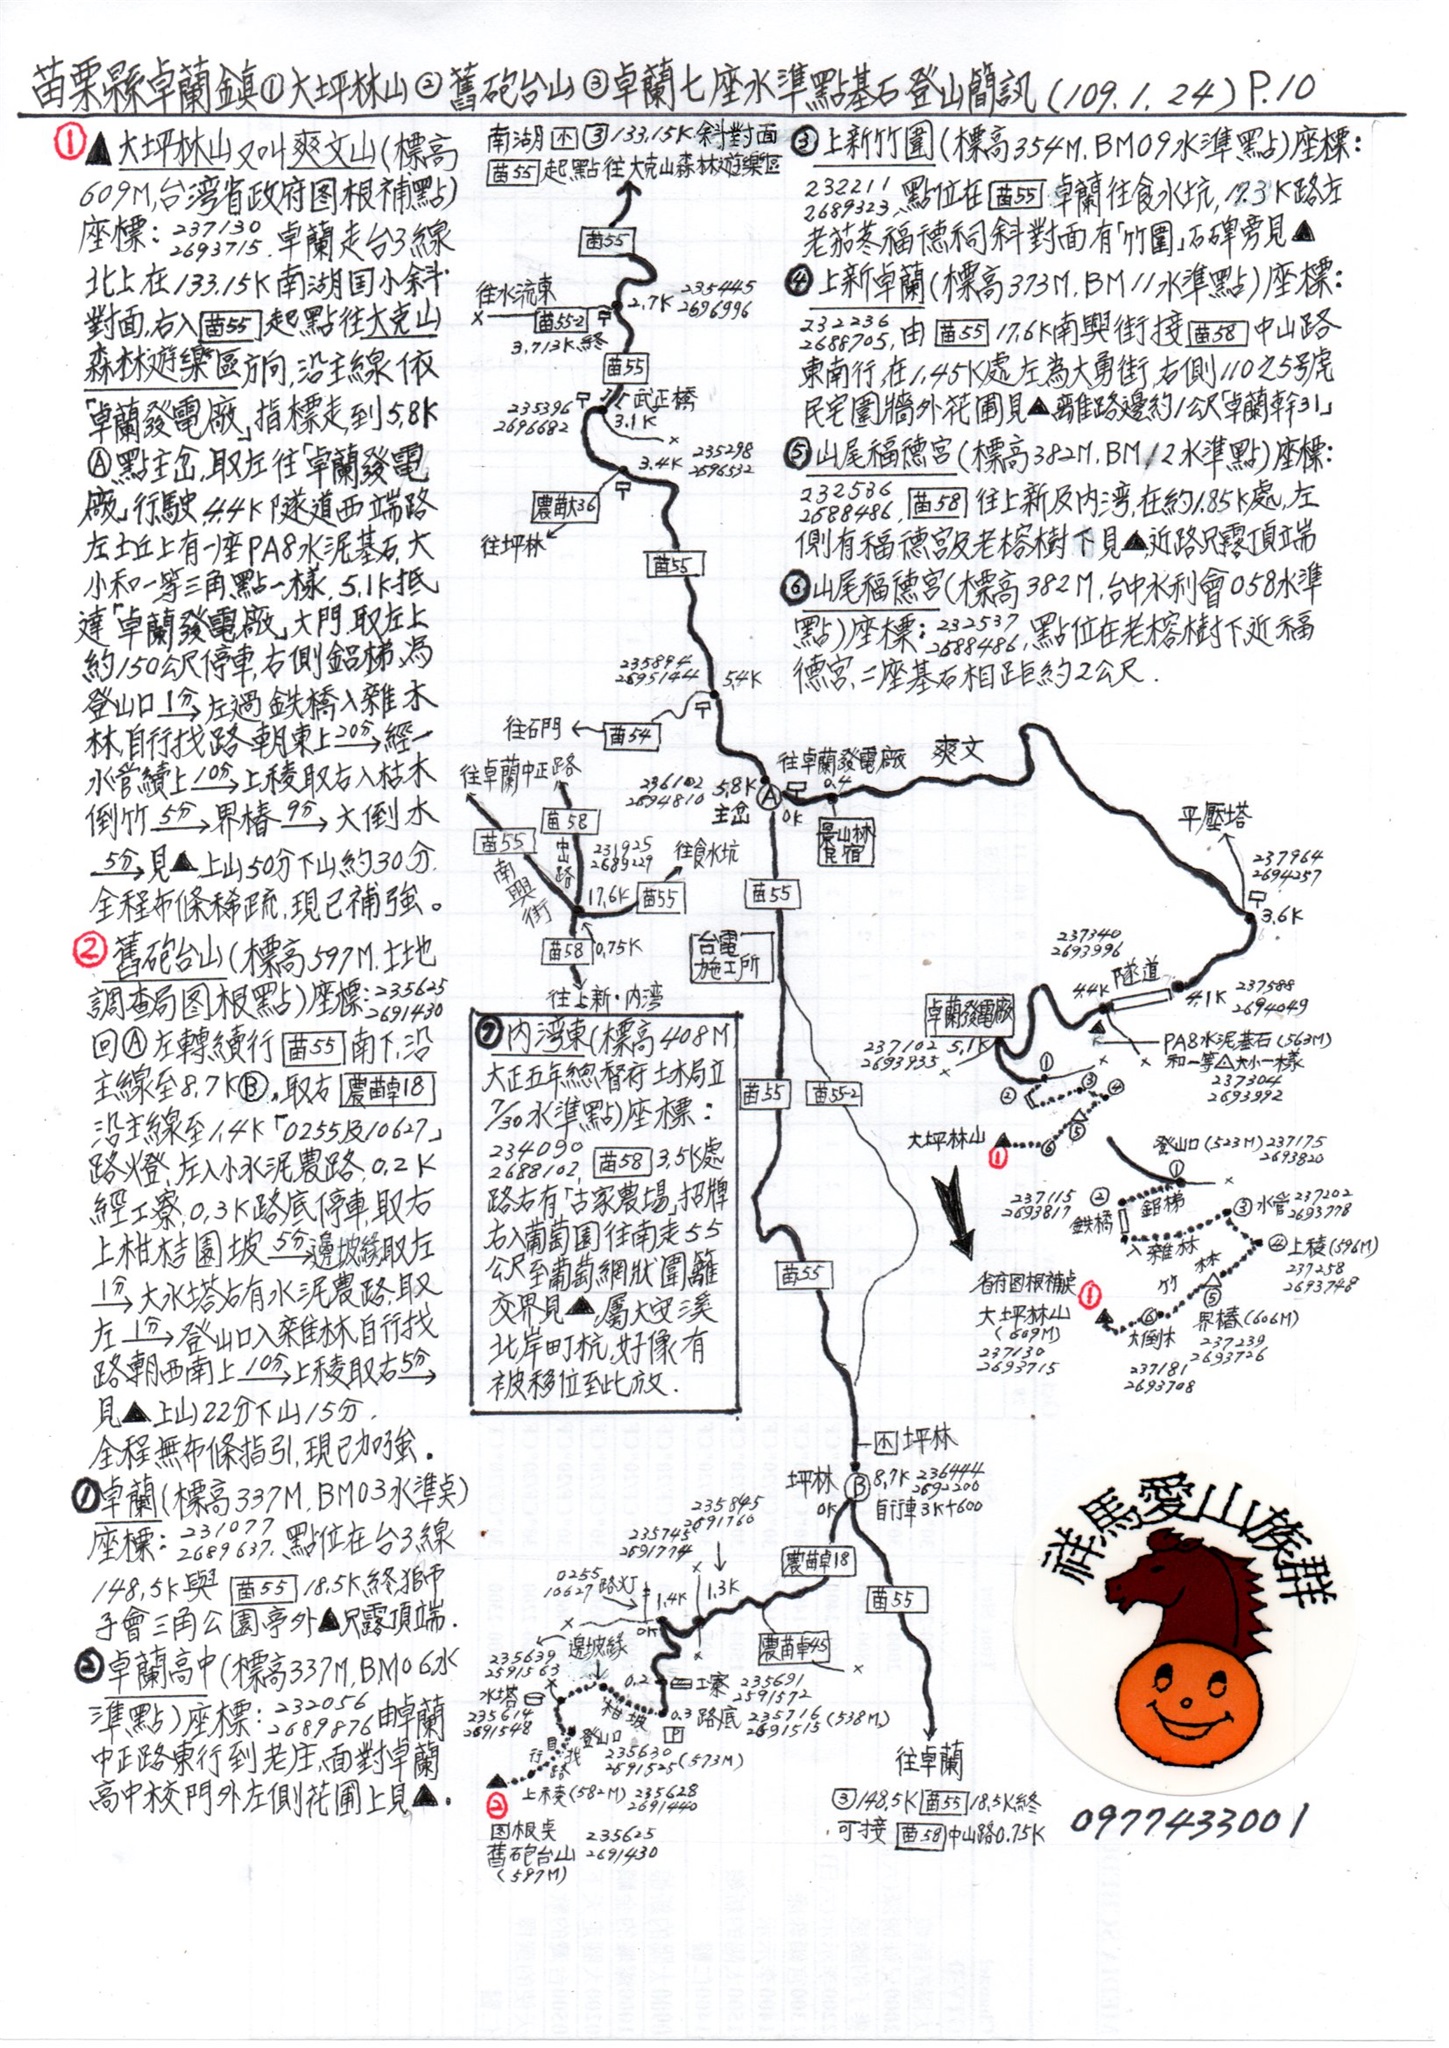 苗栗縣卓蘭鎮①大坪林山②舊砲台山③卓蘭七座水準點基石登山簡訊(109.1.24)P.10
① ▲大坪林山又叫爽文山(標高
609M,台湾省政府图根補點)
座標:237130
2693715.卓蘭走台3線
北上,在133.15K南湖国小斜
對面,右入苗55起點往大克山
森林遊樂區方向,沿主線依
「卓蘭發電廠」指標走,到5.8K
Ⓐ點主岔,取左往「卓蘭發電
廠」行駛,4.4K隧道西端路
左土丘上有一座PA8水泥基石,大
小和一等三角點一樣,5.1K抵
達「卓蘭發電廠」大門,取左上
約150公尺停車,右側鋁梯為
登山口1分→左過鉄橋入雜木
林,自行找路朝東上20分→經一
水管續上10分→上稜取右入枯木
倒竹5分→界樁9分→大倒木
5分→見▲上山50分下山約30分.
全程布條稀疏,現已補強。
② 舊砲台山(標高597M.土地
調查局图根點)座標:235625
2691430
回Ⓐ左轉續行苗55南下,沿
主線至8.7KⒷ,取右農苗卓18
沿主線至1.4K「0255及10627」
路燈,左入小水泥農路,0.2K
經工寮,0.3K路底停車,取右
上柑桔園坡5分→邊坡緣取左
1分→大水塔右有水泥農路,取
左1分→登山口入雜林自行找
路朝西南上10分→上稜取右5分→
見▲上山22分下山15分.
全程無布條指引,現已加強。
❶卓蘭(標高337M,BM03水準奌)
座標:231077
2689637.點位在台3線
148.5K與苗55 18.5K終獅
子會三角公園亭外▲只露頂端.
❷卓蘭高中(標高337M,BM06水
準點)座標:232056
2689876由卓蘭
中正路東行到老庄,面對卓蘭
高中校門外左側花圃上見▲.
南湖 小 ③133.15K斜對面
苗55起點往大克山森林遊樂區
苗55
往水流東
苗55-2
3.713K終
2.7K 235445
2696996
苗55
235396
2696682
武正橋
3.1K
235298
2696532
3.4K
農苗大36
往坪林
苗55
235894
2695144
5.4K
往石門
苗54
往卓蘭中正路
苗55
苗58
中山路
南興街
231925
2689229
17.6K
苗55
往食水坑
苗58
0.75K
往上新.内湾
236102
2694810
5.8K
主岔
Ⓐ
0K
往卓蘭發電廠
0.4
景山林
食宿
爽文
苗55
台電
施工所
苗55
苗55-2
苗55
❼内湾東(標高408M
大正五年總督府土木局立
7/30水準點)座標:
234090
2688102,苗58 3.5K處
路右有「古家農場」招牌
右入葡萄園往南走55
公尺至葡萄網狀圍籬
交界見▲,屬大安溪
北岸町杭,好像有
被移位至此放.
❸上新竹圍(標高354M,BM09水準點)座標:
232211
2689323,點位在苗55卓蘭往食水坑,17.3K路左
老茄苳福德祠斜對面有「竹圍」石碑旁見▲
❹上新卓蘭(標高373M,BM11水準點)座標:
232236
2688705,由苗55 17.6K南興街接苗58中山路
東南行,在1.45K處左為大勇街,右側11025号虎
民宅圍牆外花圃見▲離路邊約1公尺「卓蘭幹31」
❺山尾福德宮(標高382M,BM12水準點)座標:
232536
2688486,苗58往上新及内湾,在約1.85K處,左
側有福德宮及老榕樹下見▲,近路只露頂端
❻山尾福德宮(標高382M,台中水利會058水準
點)座標:232537
2688486,點位在老榕樹下,近福
德宮,二座基石相距約2公尺.
平壓塔
237964
2694257
3.6K
237340
2693996
隧道
4.4K
4.1K
237588
2694049
卓蘭發電廠
237102
2693935
5.1K
PA8水泥基石(563M)
和一等△大小一樣
237304
2693992
① ② ③ ④ ⑤ ⑥
大坪林山
①
登山口(523M)237175
2693820
①
237115
2693817
②
鉄橋
鋁梯
③水管237202
2693778
入雜林
竹林
④上稜(596M)
237258
2693748
⑤
界樁(606M)
237239
2693726
⑥
大倒木
237181
2693708
省府图根補奌
①
大坪林山
(609M)
237130
2693715
小 坪林
坪林Ⓑ 8.7K 236444
2692200
0K
自行車3K+600
農苗卓18
苗55
235845
2691760
235745
2691774
1.3K
0255
10627路灯
1.4K
0K
農苗卓45
邊坡緣
235639
2591563
水塔
235614
2691548
0.2
工寮235691
2591572
柑坡
0.3路底235716(538M)
2691515
P
登山口
235630
2591525(573M)
自行找路
上稜(582M)235628
2691440
②
图根奌
舊砲台山
(597M)
235625
2691430
往卓蘭
③148.5K苗55 18.5K終
可接苗58中山路0.75K
祥馬愛山族群
0977433001